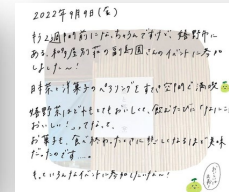 2022年9月9日(金)
約2週間前になっちゃうんですけど、嬉野市に
ある、和多屋別荘の副島園さんのイベントに参加
しました〜!
日本茶と洋菓子のペアリングをすてきな空間で満喫
嬉野茶はどれもとてもおいしくて、飲むたびに「なにこれ
おいしい!」ってなって、
お菓子も、食べ終わったときに悲しくなるほど美味
だったのです…。
もっといろんなイベントに参加したいな〜!